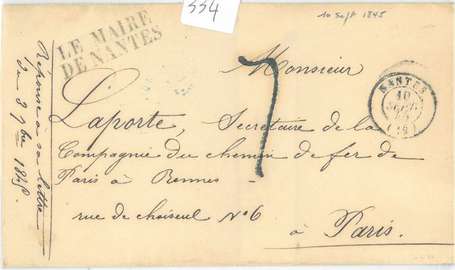 334
10 Sept 1845
LE MAIRE
DE NANTES
Monsieur
Laporte, Secrétaire de la
Compagnie du chemin de fer de
Paris à Rennes
rue de choiseul N° 6
à Paris.
7
NANTES
10
SEPT.
(42)
Réponse à sa lettre
du 3 7bre 1845.